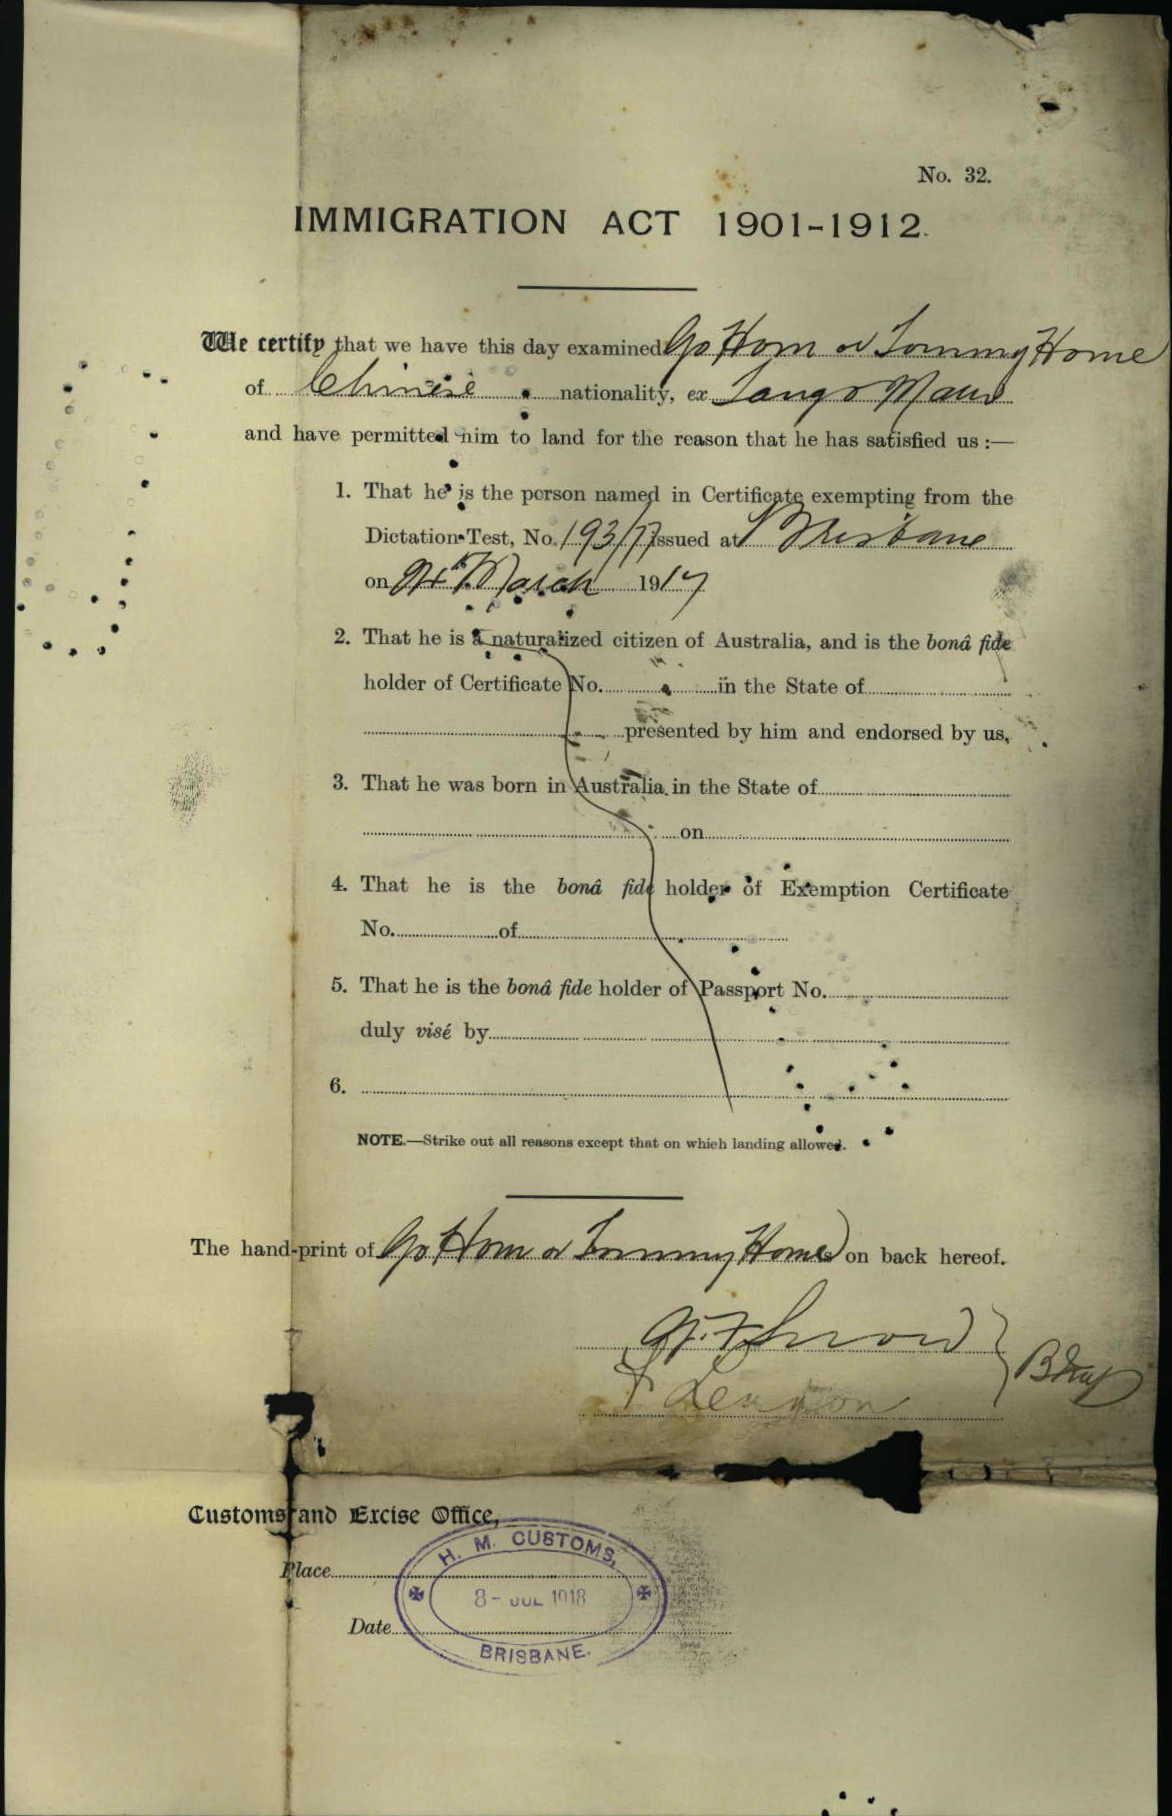 No. 32.
IMMIGRATION ACT 1901-1912.
We certify that we have this day examined Go Hom or Tommy Home
of Chinese nationality, ex Tango Maru
and have permitted him to land for the reason that he has satisfied us :—
1. That he is the person named in Certificate exempting from the
Dictation Test, No. 193/77 issued at Brisbane
on March 1917
2. That he is a naturalized citizen of Australia, and is the bonâ fide
holder of Certificate No. in the State of
presented by him and endorsed by us,
3. That he was born in Australia in the State of
on
4. That he is the bonâ fide holder of Exemption Certificate
No. of
5. That he is the bonâ fide holder of Passport No.
duly visé by
6.
NOTE.—Strike out all reasons except that on which landing allowed.
The hand-print of Go Hom or Tommy Home on back hereof.
Customs and Excise Office,
Place
Date
H. M. CUSTOMS,
8 - JUL 1918
BRISBANE.